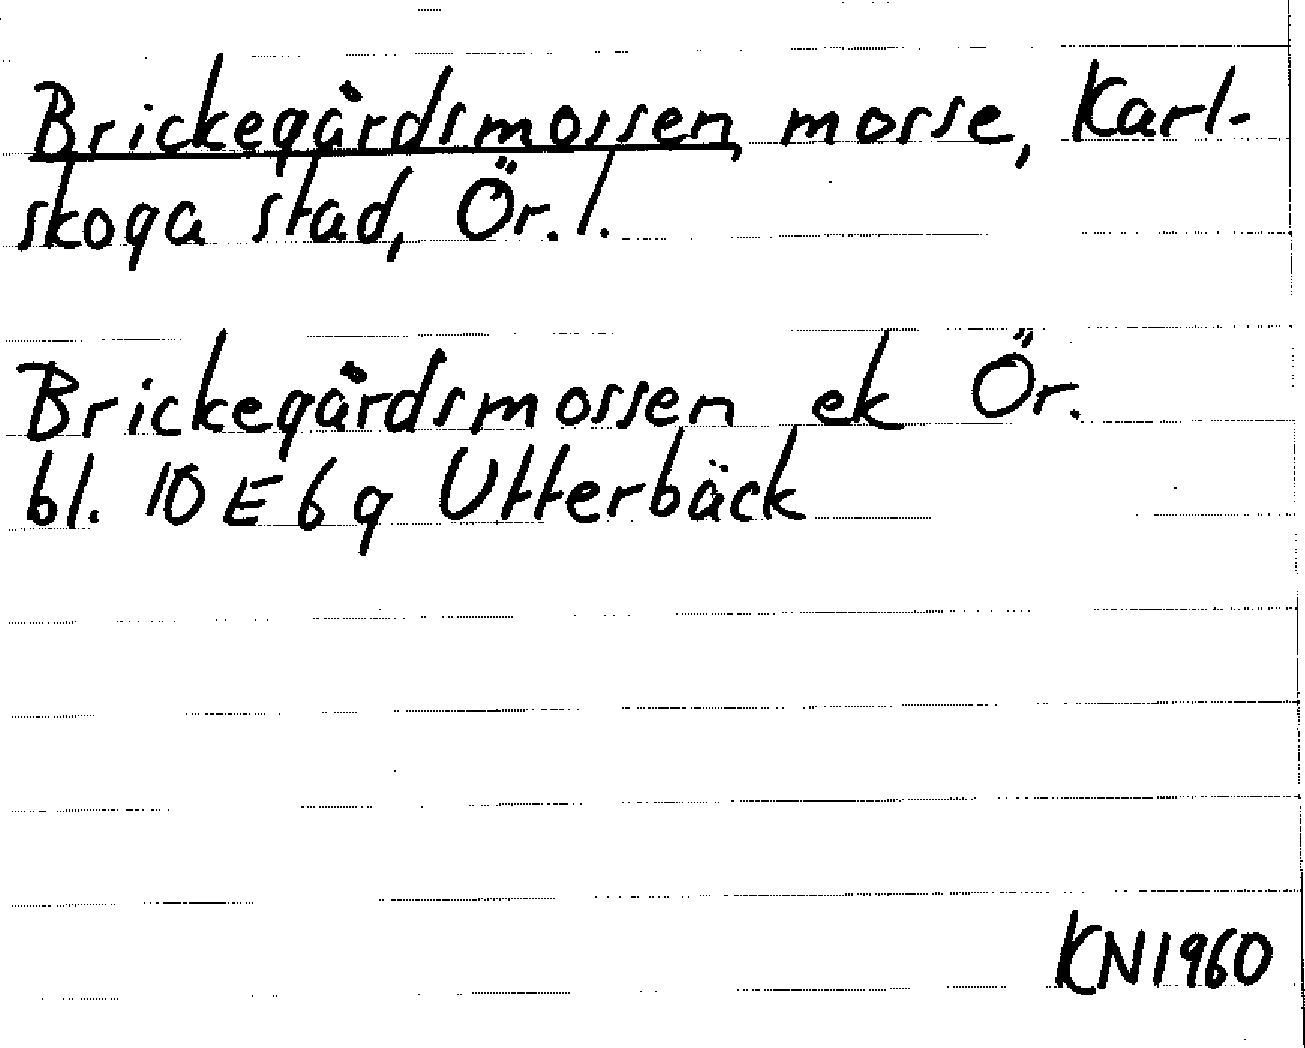 Brickegårdsmossen, mosse, Karl-
skoga stad, Ör. l.
Brickegårdsmossen ek Ör.
bl. 10 E 6 g Utterbäck
KN1960